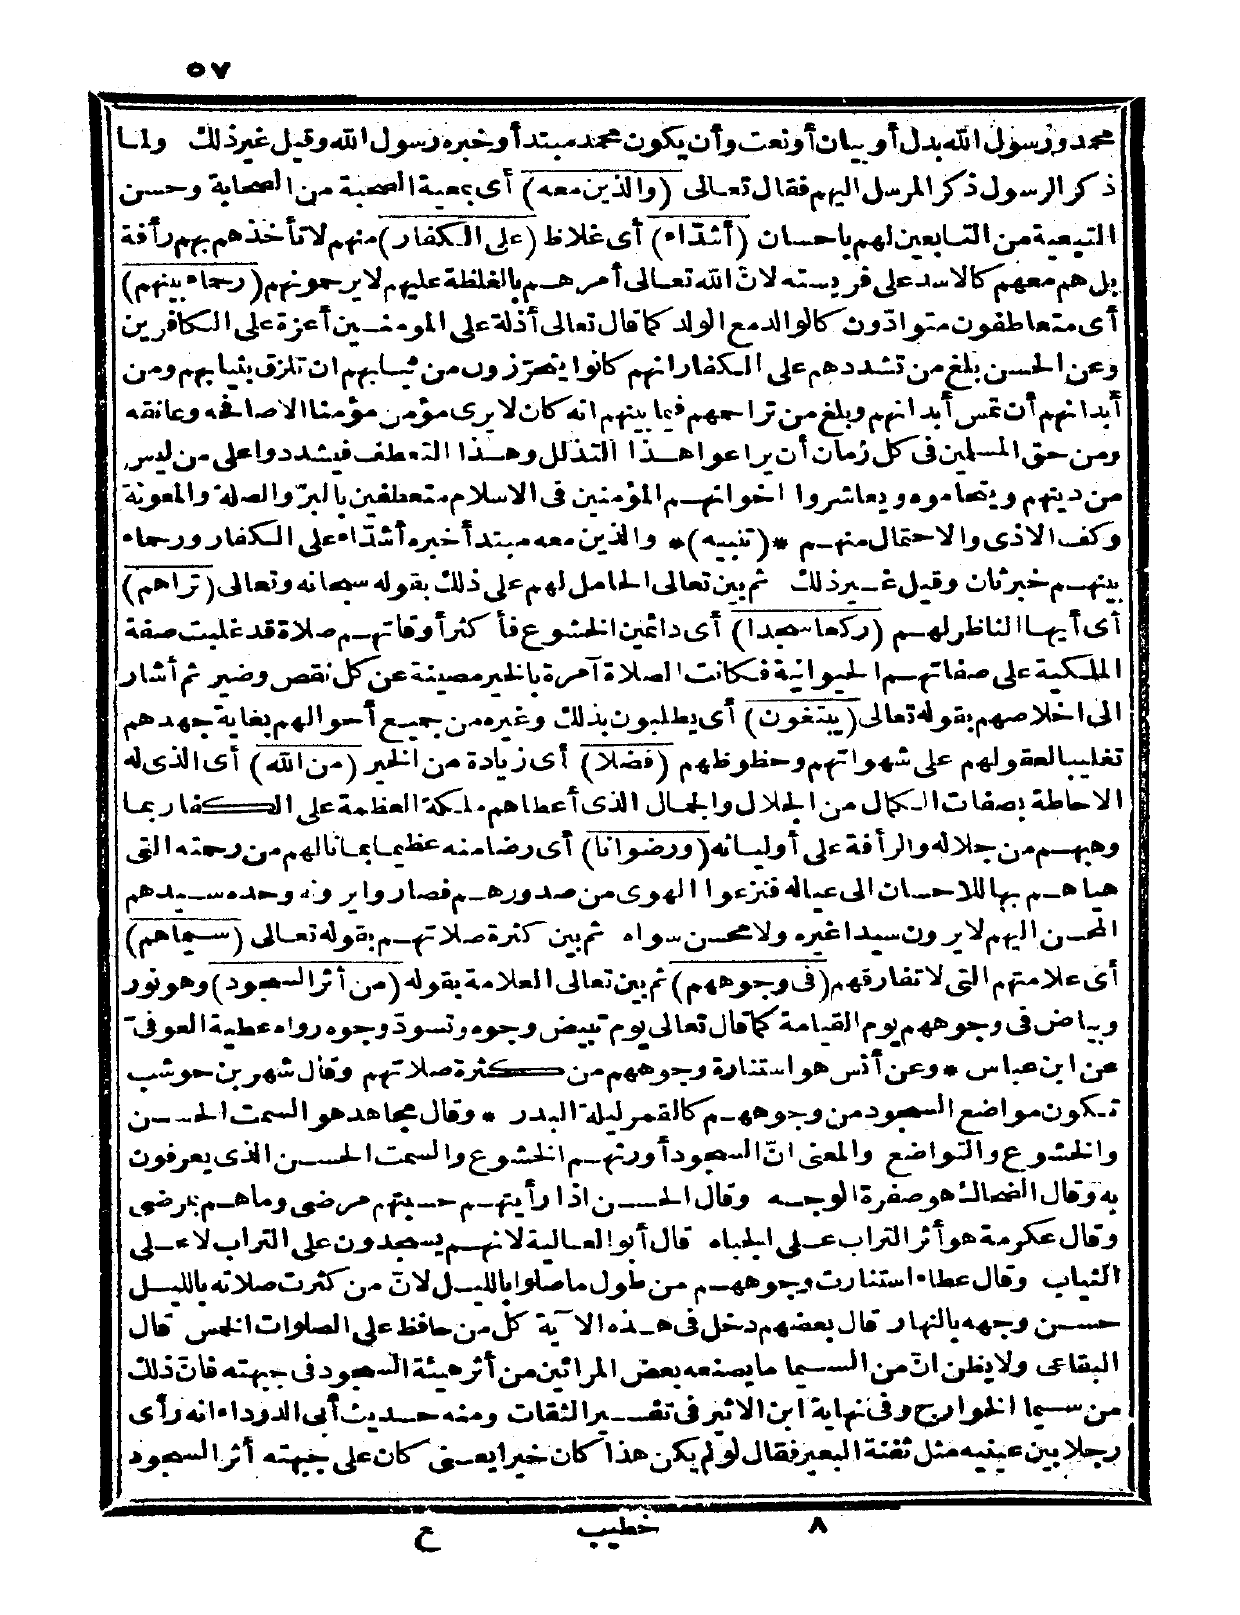 ٥٧
محمد ورسول الله بدل أو بيان أو نعت وأن يكون محمد مبتدأ وخبره رسول الله وقيل غير ذلك ولما
ذكر الرسول ذكر المرسل اليهم فقال تعالى (والذين معه) أى بمعية الصحبة من الصحابة وحسن
التبعية من التابعين لهم باحسان (أشدّاء) أى غلاظ (على الكفار) منهم لا تأخذهم بهم رأفة
بل هم معهم كالاسد على فريسته لانّ الله تعالى أمرهم بالغلظة عليهم لا يرحمونهم (رحماء بينهم)
أى متعاطفون متوادّون كالوالد مع الولد كما قال تعالى أذلة على المؤمنين أعزة على الكافرين
وعن الحسن بلغ من تشددهم على الكفار انهم كانوا يتحرّزون من ثيابهم ان تلزق بثيابهم ومن
أبدانهم أن تمس أبدانهم وبلغ من تراحمهم فيما بينهم انه كان لا يرى مؤمن مؤمنا الا صافحه وعانقه
ومن حق المسلمين فى كل زمان أن يراعوا هذا التذلل وهذا التعطف فيشددوا على من ليس
من دينهم ويتحاموه ويعاشروا اخوانهم المؤمنين فى الاسلام متعطفين بالبرّ والصلة والمعونة
وكف الاذى والاحتمال منهم *(تنبيه)* والذين معه مبتدأ خبره أشدّاء على الكفار ورحماء
بينهم خبر ثان وقيل غير ذلك ثم بين تعالى الحامل لهم على ذلك بقوله سبحانه وتعالى (تراهم)
أى أيها الناظر لهم (ركعا سجدا) أى دائمين الخشوع فأكثر أوقاتهم صلاة قد غلبت صفة
الملكية على صفاتهم الحيوانية فكانت الصلاة آمرة بالخير مصينة عن كل نقص وضير ثم أشار
الى اخلاصهم بقوله تعالى (يبتغون) أى يطلبون بذلك وغيره من جميع أحوالهم بغاية جهدهم
تغليبا لعقولهم على شهواتهم وحظوظهم (فضلا) أى زيادة من الخير (من الله) أى الذى له
الاحاطة بصفات الكمال من الجلال والجمال الذى أعطاهم ملكة العظمة على الكفار بما
وهبهم من جلاله والرأفة على أوليائه (ورضوانا) أى رضا منه عظيما بما نالهم من رحمته التى
هيأهم بها للاحسان الى عياله فنزعوا الهوى من صدورهم فصاروا يرونه وحده سيدهم
المحسن اليهم لا يرون سيدا غيره ولا محسن سواه ثم بين كثرة صلاتهم بقوله تعالى (سيماهم)
أى علامتهم التى لا تفارقهم (فى وجوههم) ثم بين تعالى العلامة بقوله (من أثر السجود) وهو نور
وبياض فى وجوههم يوم القيامة كما قال تعالى يوم تبيض وجوه وتسودّ وجوه رواه عطية العوفىّ
عن ابن عباس * وعن أنس هو استنارة وجوههم من كثرة صلاتهم وقال شهر بن حوشب
تكون مواضع السجود من وجوههم كالقمر ليلة البدر * وقال مجاهد هو السمت الحسن
والخشوع والتواضع والمعنى انّ السجود أورثهم الخشوع والسمت الحسن الذى يعرفون
به وقال الضحاك هو صفرة الوجه وقال الحسن اذا رأيتهم حسبتهم مرضى وما هم بمرضى
وقال عكرمة هو أثر التراب على الجباه قال أبو العالية لانهم يسجدون على التراب لا على
الثياب وقال عطاء استنارت وجوههم من طول ما صلوا بالليل لانّ من كثرت صلاته بالليل
حسن وجهه بالنهار قال بعضهم دخل فى هذه الآية كل من حافظ على الصلوات الخمس قال
البقاعى ولا يظن انّ من السيما ما يصنعه بعض المرائين من أثر هيئة السجود فى جبهته فانّ ذلك
من سيما الخوارج وفى نهاية ابن الاثير فى تفسير الثقات ومنه حديث أبى الدرداء انه رأى
رجلا بين عينيه مثل ثفنة البعير فقال لو لم يكن هذا كان خيرا يعنى كان على جبهته أثر السجود
٨ خطيب ع